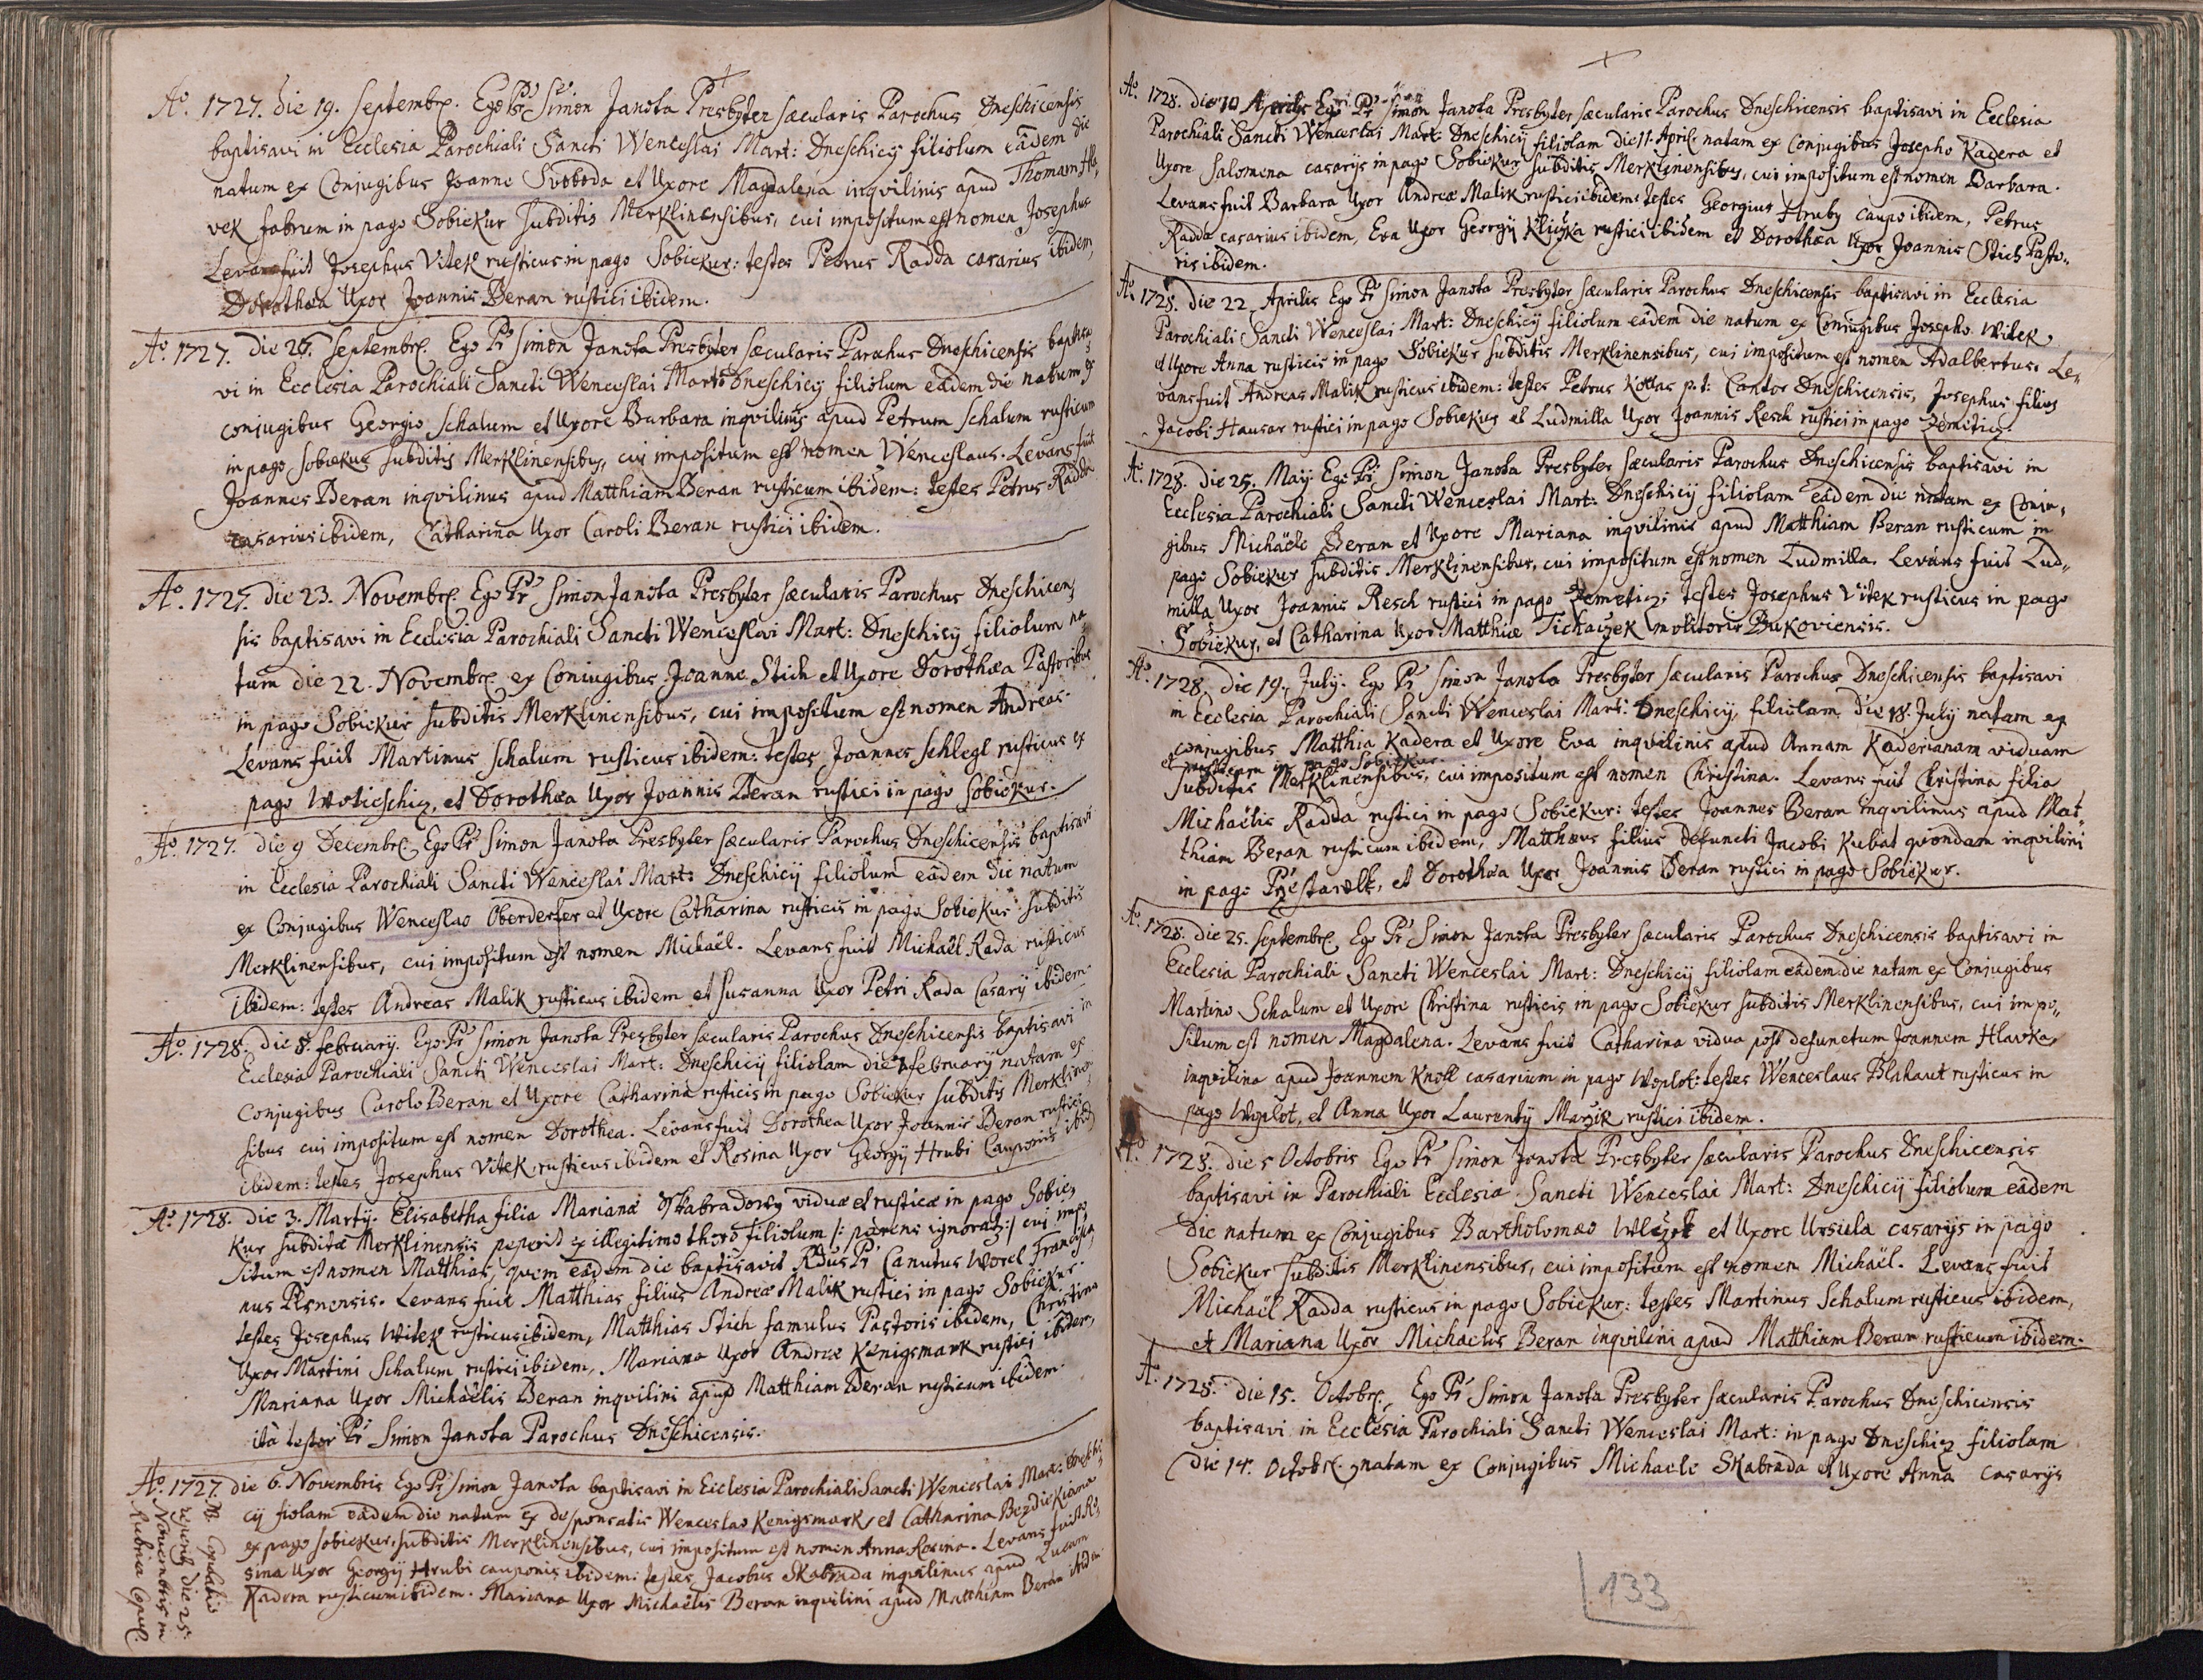 Aº. 1727. die 19. Septembr. Ego Pr Simon Janota Presbyter sæcularis Parochus Dneschicensis
baptisavi in Ecclesia Parochiali Sancti Wenceslai Mart: Dneschicij filiolum eâdem die
natum ex Conjugibus Joanne Svoboda et Uxore Magdalena inqvilinis apud Thomam Hla,
vek fabrum in pago Sobiekur subditis Merklinensibus, cui impositum est nomen Josephus
Levans fuit Josephus Vitek rusticus in pago Sobiekur: testes Petrus Radda casarius ibidem,
Dorothæa Uxor Joannis Beran rustici ibidem.
Aº. 1727. die 26. Septembr. Ego Pr Simon Janota Presbyter sæcularis Parochus Dneschicensis baptisa
vi in Ecclesia Parochiali Sancti Wenceslai Mart: Dneschicij filiolum eâdem die natum ex
conjugibus Georgio Schalum et Uxore Barbara inqvilinis apud Petrum Schalum rusticum
in pago Sobiekur subditis Merklinensibus, cui impositum est nomen Wenceslaus. Levans fuit
Joannes Beran inqvilinus apud Matthiam Beran rusticum ibidem: testes Petrus Radda
casarius ibidem, Catharina Uxor Caroli Beran rustici ibidem.
Aº. 1727. die 23. Novembr. Ego Pr Simon Janota Presbyter sæcularis Parochus Dneschicen,
sis baptisavi in Ecclesia Parochiali Sancti Wenceslai Mart: Dneschicij filiolum na
tum die 22. Novembr. ex Coniugibus Joanne Stich et Uxore Dorothæa Pastoribus
in pago Sobiekur subditis Merklinensibus, cui impositum est nomen Andreas.
Levans fuit Martinus Schalum rusticus ibidem: testes Joannes Schlegl rusticus ex
pago Wotieschiz, et Dorothæa Uxor Joannis Beran rustici in pago Sobiekur.
Aº. 1727. die 9 Decembr. Ego Pr Simon Janota Presbyter sæcularis Parochus Dneschicensis baptisavi
in Ecclesia Parochiali Sancti Wenceslai Mart: Dneschicij filiolum eâdem die natum
ex Conjugibus Wenceslao Oberderfer et Uxore Catharina rusticis in pago Sobiekur subditis
Merklinensibus, cui impositum est nomen Michaël. Levans fuit Michaël Rada rusticus
ibidem: testes Andreas Malik rusticus ibidem et Susanna Uxor Petri Rada Casarij ibidem.
Aº. 1728. die 8. february. Ego Pr Simon Janota Presbyter sæcularis Parochus Dneschicensis baptisavi in
Ecclesia Parochiali Sancti Wenceslai Mart: Dneschicij filiolam die 7 february natam ex
Conjugibus Carolo Beran et Uxore Catharina rusticis in pago Sobiekur subditis Merklinen,
sibus cui impositum est nomen Dorothea. Levans fuit Dorothea Uxor Joannis Beran rustici
ibidem: testes Josephus Vitek rusticus ibidem et Rosina Uxor Georgij Hrubi Cauponis ibid.
Aº. 1728. die 3. Martij. Elisabetha filia Marianæ Skabradovy viduæ et rusticæ in pago Sobie,
kur subditæ Merklinensis peperit ex illegitimo thoro filiolum /: parens ignorat :/ cui impo
situm est nomen Matthias, quem eâdem die baptisavit Rdus Pr Canutus Worel Francisca,
nus Plsnensis. Levans fuit Matthias filius Andreæ Malik rustici in pago Sobiekur.
testes Josephus Witek rusticus ibidem, Matthias Stich famulus Pastoris ibidem, Christina
Uxor Martini Schalum rustici ibidem, Mariana Uxor Andreæ Kinigsmark rustici ibidem,
Mariana Uxor Michaëlis Beran inqvilini apud Matthiam Beran rusticum ibidem.
ità testor Pr Simon Janota Parochus Dneschicensis.
Aº. 1727. die 6. Novembris Ego Pr Simon Janota baptisavi in Ecclesia Parochiali Sancti Wenceslai Mart: Dneschi,
cij fiolam eâdem die natam ex desponsatis Wenceslao Kenigsmark et Catharina Bezdiekiana
ex pago Sobiekur, subditis Merklinensibus, cui impositum est nomen Anna Rosina. Levans fuit Ro,
sina Uxor Georgij Hrubi cauponis ibidem: testes Jacobus Skabrada inqvilinus apud Lucam
Kadera rusticum ibidem. Mariana Uxor Michaëlis Beran inqvilini apud Matthiam Beran ibidem
NB. Copulatio
reperit die 25.
Novembris in
Rubrica Copul.
Aº. 1728. die Aprilis Ego Pr Simon Janota Presbyter sæcularis Parochus Dneschicensis baptisavi in Ecclesia
Parochiali Sancti Wenceslai Mart: Dneschicij filiolam die 11. April natam ex Conjugibus Josepho Kadera et
Uxore Salomena casarijs in pago Sobiekur subditis Merklinensibus, cui impositum est nomen Barbara.
Levans fuit Barbara Uxor Andreæ Malik rustici ibidem: testes Georgius Hruby caupo ibidem, Petrus
Radda casarius ibidem, Eva Uxor Georgij Kliczka rustici ibidem et Dorothæa Uxor Joannis Stich Pasto,,
ris ibidem.
Aº. 1728. die 22. Aprilis Ego Pr Simon Janota Presbyter sæcularis Parochus Dneschicensis baptisavi in Ecclesia
Parochiali Sancti Wenceslai Mart: Dneschicij filiolum eâdem die natum ex Coniugibus Josepho Witek
et Uxore Anna rusticis in pago Sobiekur subditis Merklinensibus, cui impositum est nomen Adalbertus. Le,,
vans fuit Andreas Malik rusticus ibidem: testes Petrus Kottas p.t: Cantor Dneschicensis, Josephus filius
Jacobi Hausar rustici in pago Sobiekur et Ludmilla Uxor Joannis Resch rustici in pago Zemitiz.
Aº. 1728. die 25. May. Ego Pr Simon Janota Presbyter sæcularis Parochus Dneschicensis baptisavi in
Ecclesia Parochiali Sancti Wenceslai Mart: Dneschicij filiolam eâdem die natam ex Conju,
gibus Michäele Beran et Uxore Mariana inqvilinis apud Matthiam Beran rusticum in
pago Sobiekur subditis Merklinensibus, cui impositum est nomen Ludmilla. Levans fuit Lud,,
milla Uxor Joannis Resch rustici in pago Zemetiz: testes Josephus Vitek rusticus in pago
Sobiekur, et Catharina Uxor Matthiæ Tichaczek molitoris Bukoviensis.
Aº. 1728. die 19. July. Ego Pr Simon Janota Presbyter sæcularis Parochus Dneschicensis baptisavi
in Ecclesia Parochiali Sancti Wenceslai Mart: Dneschicij, filiolam die 18. July natam ex
conjugibus Matthia Kadera et Uxore Eva inqvilinis apud Annam Kaderianam viduam
et rusticam in pago Sobiekur.
subditis Merklinensibus, cui impositum est nomen Christina. Levans fuit Christina filia
Michaëlis Radda rustici in pago Sobiekur: testes Joannes Beran inqvilinus apud Mat,
thiam Beran rusticum ibidem, Matthæus filius defuncti Jacobi Kubat qvondam inqvilini
in pago Przestawlk, et Dorothæa Uxor Joannis Beran rustici in pago Sobiekur.
Aº. 1728. die 25. Septembr. Ego Pr Simon Janota Presbyter sæcularis Parochus Dneschicensis baptisavi in
Ecclesia Parochiali Sancti Wenceslai Mart: Dneschicij filiolam eâdem die natam ex Conjugibus
Martino Schalum et Uxore Christina rusticis in pago Sobiekur subditis Merklinensibus, cui impo,,
situm est nomen Magdalena. Levans fuit Catharina vidua post defunctum Joannem Hlavka,
inqvilina apud Joannem Knoll casarium in pago Woplot: testes Wenceslaus Blahaut rusticus in
pago Woplot, et Anna Uxor Laurentij Marzik rustici ibidem.
Aº. 1728. die 5 Octobris Ego Pr Simon Janota Presbyter sæcularis Parochus Dneschicensis
baptisavi in Parochiali Ecclesia Sancti Wenceslai Mart: Dneschicij filiolum eâdem
die natum ex Conjugibus Bartholomæo Wlczek et Uxore Ursula casarijs in pago
Sobiekur subditis Merklinensibus, cui impositum est nomen Michaël. Levans fuit
Michaël Radda rusticus in pago Sobiekur: testes Martinus Schalum rusticus ibidem,
et Mariana Uxor Michaelis Beran inqvilini apud Matthiam Beran rusticum ibidem.
Aº. 1728. die 15. Octobr. Ego Pr Simon Janota Presbyter sæcularis Parochus Dneschicensis
baptisavi in Ecclesia Parochiali Sancti Wenceslai Mart: in pago Dneschiz filiolam
die 14. Octobr. natam ex Conjugibus Michaele Skabrada et Uxore Anna casarijs
133